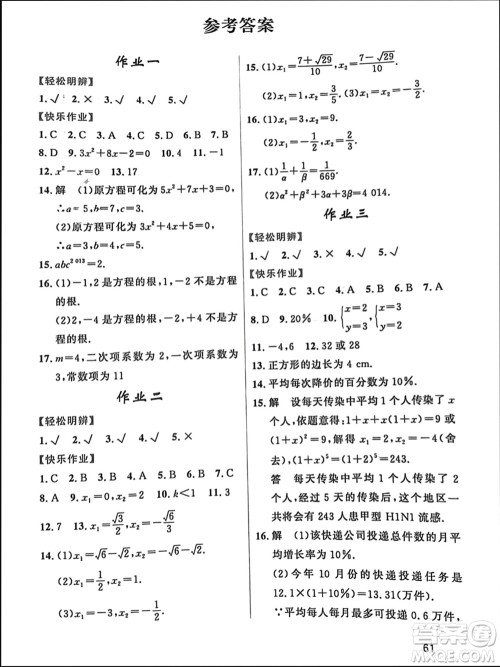 参考答案
作业一
【轻松明辨】
1. √ 2. × 3. √ 4. √
【快乐作业】
1. C 2. C 3. A 4. C 5. D 6. B 7. B
8. D 9. 3x²+8x-2=0 10. 4 11. 0
12. x²-x=0 13. 17
14. 解 (1)原方程可化为5x²+7x+3=0,
∴a=5,b=7,c=3.
(2)原方程可化为3x²-8x-10=0,
∴a=3,b=-8,c=-10.
15. abc²⁰¹³=2.
16. (1)-1,2是方程的根,1,-2不是方程的根.
(2)2,-4是方程的根,-2,4不是方程的根.
17. m=4,二次项系数为2,一次项系数为7,常数项为11
作业二
【轻松明辨】
1. √ 2. × 3. √ 4. √
【快乐作业】
1. C 2. B 3. C 4. A 5. D 6. A 7. D
8. B 9. A 10. x₁=0,x₂=2 11. k<1
12. 7 13. x₁=√3/2,x₂=-√6/3
14. (1)x₁=√6-2,x₂=-√6-2.
(2)x₁=-1/2,x₂=1.
(3)x₁=-1/2,x₂=3/2.
15. (1)x₁=(7+√29)/10,x₂=(7-√29)/10.
(2)x₁=-1,x₂=3/5.
16. (1)x₁=2/3,x₂=-1/2.
(2)x₁=0,x₂=1/2.
17. (1)1/α+1/β=1/669.
(2)α²+β²+3α+3β=4 014.
作业三
【轻松明辨】
1. √ 2. √ 3. × 4. √
【快乐作业】
1. C 2. D 3. A 4. A 5. C 6. B 7. B
8. D 9. 20% 10. {x=2 y=3 {x=3 y=2
11. -4,6 12. 32或28
13. 正方形的边长为4 cm.
14. 平均每次降价的百分数为10%.
15. 解 设每天传染中平均1个人传染了x
个人,依题意得:1+x+x(1+x)=9
或(1+x)²=9,解得x₁=2,x₂=-4(舍
去),(1+x)⁵=(1+2)⁵=243.
答 每天传染中平均1个人传染了2个
人,经过5天的传染后,这个地区一
共将会有243人患甲型H1N1流感.
16. 解 (1)该快递公司投递总件数的月平
均增长率为10%.
(2)今年10月份的快递投递任务是
12.1×(1+10%)=13.31(万件).
∵平均每人每月最多可投递0.6万件,
61